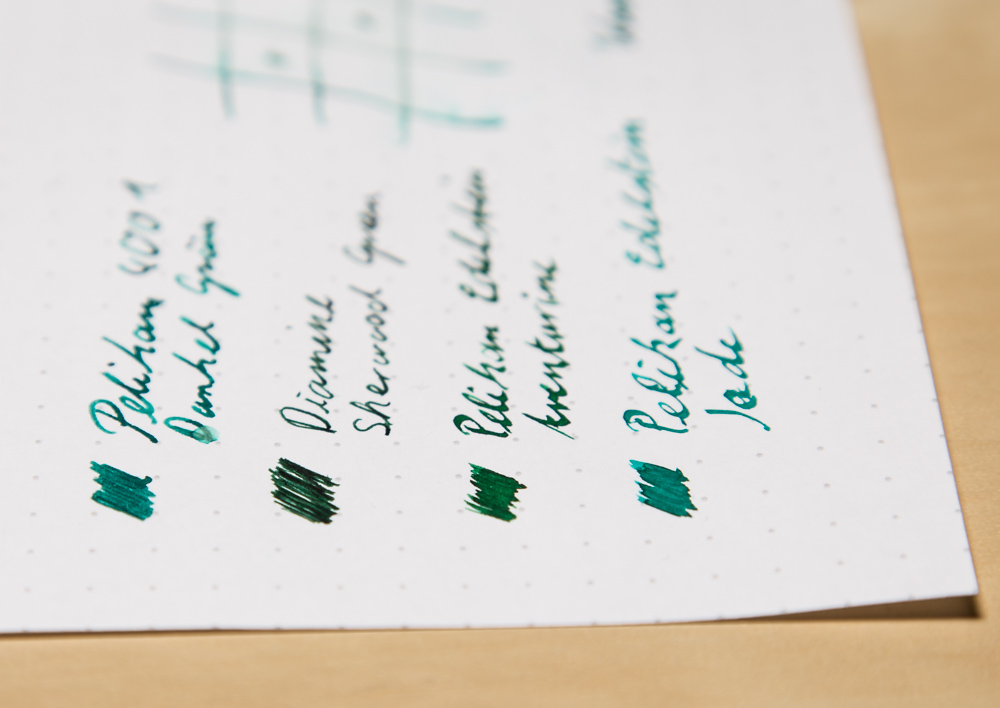 Pelikan 4001
Dunkel Grün
Diamine
Sherwood Green
Pelikan Edelstein
Aventurine
Pelikan Edelstein
Jade